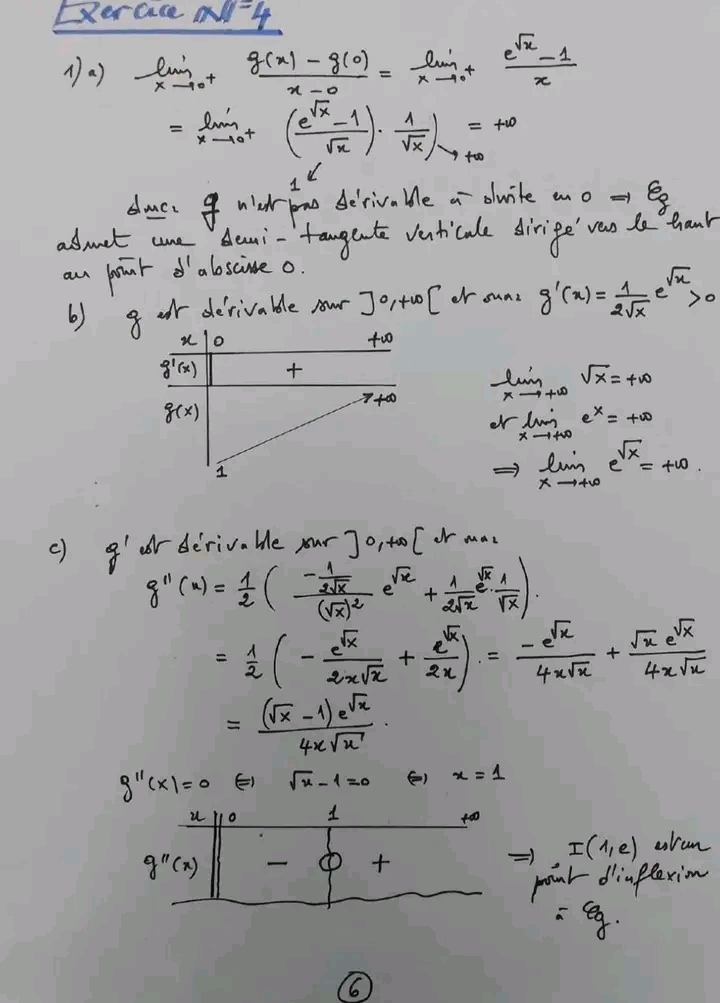 Exercice N°4
1) a) lim x→0⁺ (g(x) – g(0))/(x – 0) = lim x→0⁺ (e^√x – 1)/x
= lim x→0⁺ ((e^√x – 1)/√x · 1/√x) = +∞
1 +∞
donc g n'est pas dérivable à droite en 0 ⇒ 𝒞g
admet une demi-tangente verticale dirigé vers le haut
au point d'abscisse 0.
b) g est dérivable sur ]0,+∞[ et on a: g'(x) = 1/(2√x) e^√x > 0
x 0 +∞
g'(x) +
g(x) 1 +∞
lim x→+∞ √x = +∞
et lim x→+∞ e^x = +∞
⇒ lim x→+∞ e^√x = +∞.
c) g' est dérivable sur ]0,+∞[ et on a:
g''(x) = 1/2 ( (–1/(2√x))/(√x)² e^√x + 1/(2√x) e^√x · 1/√x ).
= 1/2 ( – e^√x/(2x√x) + e^√x/(2x) ). = –e^√x/(4x√x) + √x e^√x/(4x√x)
= (√x – 1) e^√x/(4x√x).
g''(x) = 0 ⇔ √x – 1 = 0 ⇔ x = 1
x 0 1 +∞
g''(x) – 0 +
⇒ I(1,e) est un
point d'inflexion
à 𝒞g.
6